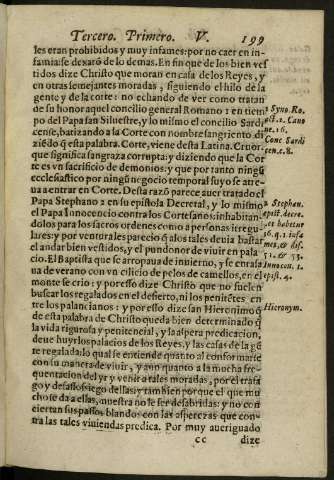 Tercero. Primero. V. 199
les eran prohibidos y muy infames: por no caer en in-
famia se dexarõ de lo demas. En fin que de los bien ves
tidos dize Christo que moran en casa de los Reyes, y
en otras semejantes moradas, siguiendo el hilo de la
gente y de la corte: no echando de ver como tratan
de su honor aquel concilio general Romano 2 en tiem
po del Papa san Siluestre, y lo mismo el concilio Sardi
cense, batizando a la Corte con nombre sangriento di
ziẽdo q̃ esta palabra. Corte, viene desta Latina. Cruor.
que significa sangraza corrupta: y diziendo que la Cor
te es vn sacrificio de demonios: y que por tanto ningũ
ecclesiastico por ningũ negocio temporal suyo se atre
ua a entrar en Corte. Desta razõ parece auer tratado el
Papa Stephano 2 en su epistola Decretal, y lo mismo
el Papa Innocencio contra los Cortesanos: inhabitan
dolos para los sacros ordenes como a personas irregu
lares: y por ventura les pareciò q̃ a los tales deuia bastar
el andar bien vestidos, y el pundonor de viuir en pala
cio. El Baptista que se arropaua de inuierno, y se enrasa
ua de verano con vn cilicio de pelos de camellos, en el
monte se crio: y por esso dize Christo que no suelen
buscar los regalados en el desierto, ni los penitẽtes en
tre los palancianos: y por esso dize san Hieronimo q̃
de esta palabra de Christo queda bien determinado q̃
la vida rigurosa y penitencial, y la aspera predicacion,
deue huyr los palacios de los Reyes, y las casas de la gẽ
te regalada: lo qual se entiende quanto al conformarse
con su manera de viuir, y aun quanto a la mucha fre-
quentacion del yr y venir a tales moradas, por el trafa
go y desassossiego dellas: y tambien porque el que mu
cho se da a ellas, muestra no le ser desabridas: y no con
ciertan sus passos blandos con las asperezas que con-
tra las tales viuiendas predica. Por muy aueriguado
cc dize
2 Syno. Ro.
pist. 1. Cano
ne. 16.
Conc Sardi
cen. c. 8.
a Stephan.
epist. decre.
et habetur
Innocen. 1.
epist. 4.
Hieronym.